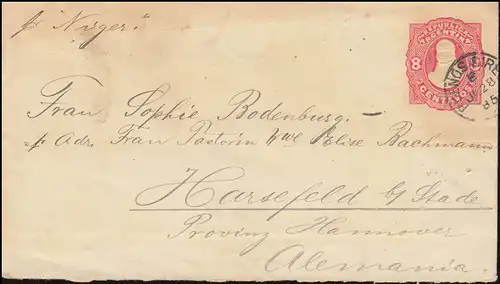 pr "Niger."
REPUBLICA
ARGENTINA
8
8
CENTAVOS
BUENOS AIRES
28
Frau Sophie Bodenburg.-
pr Adr. Frau Pastorin Wwe Elise Bachmann
Harsefeld b/ Stade
Provinz Hannover
Alemania.